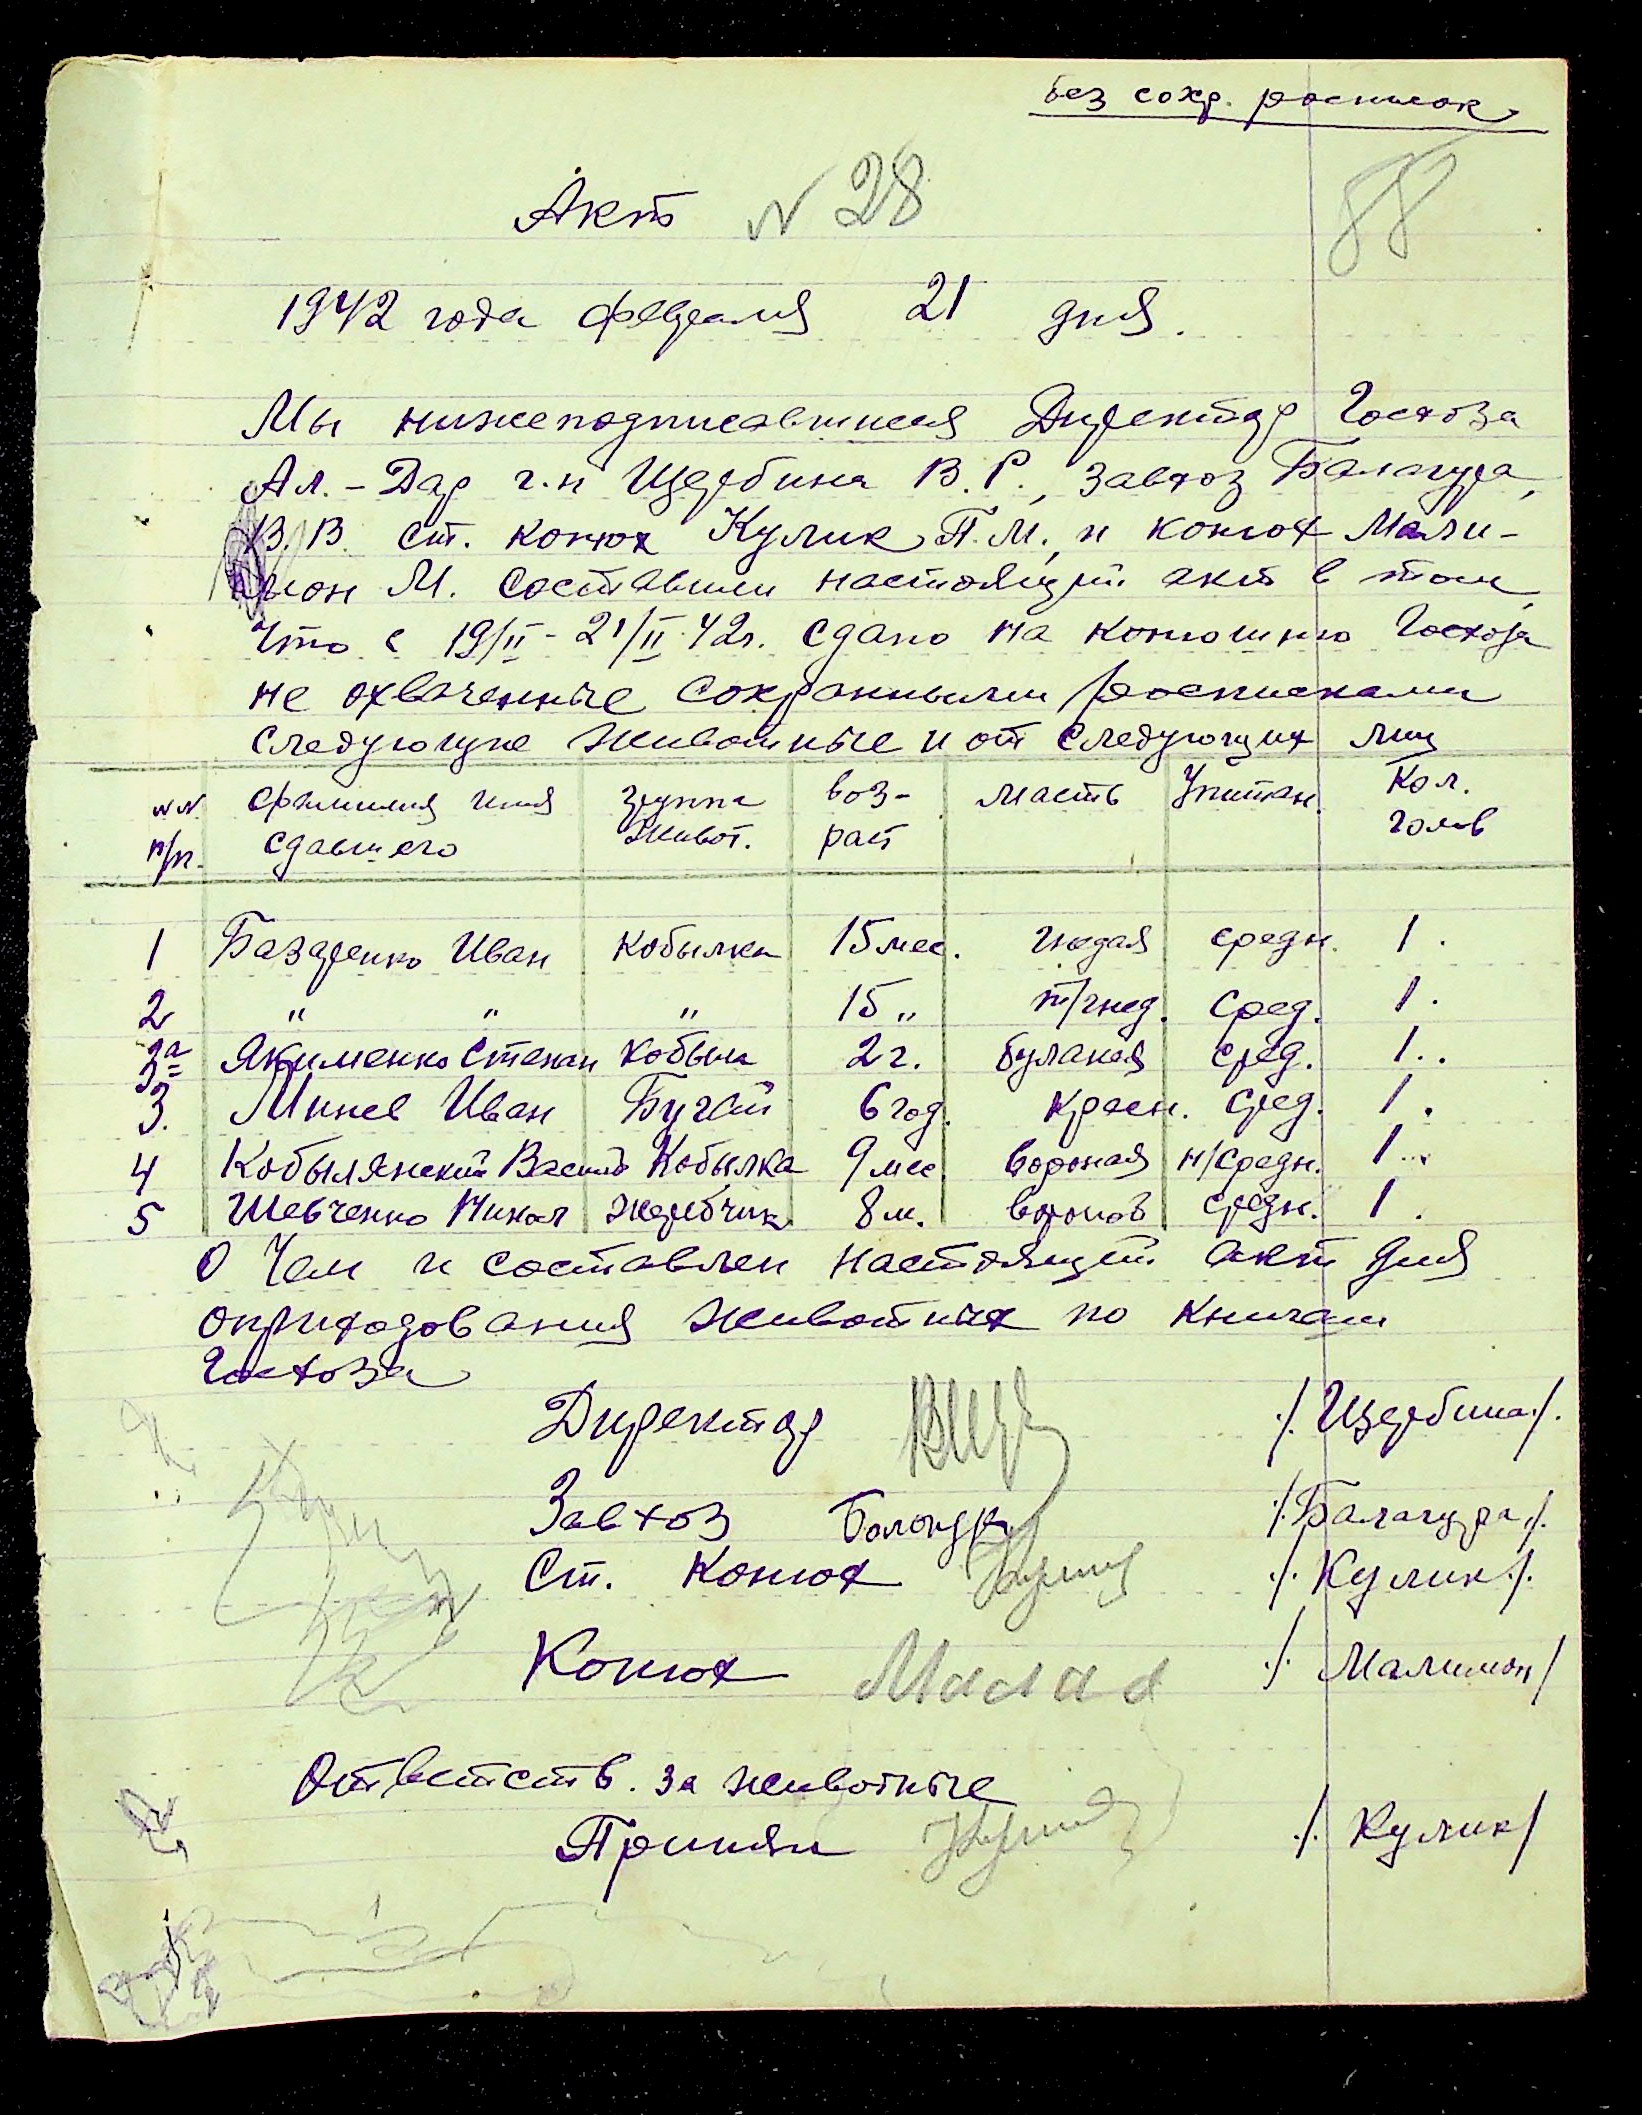 без сохр. расписок
Акт N 28
88
1942 года февраля 21 дня.
Мы нижеподписавшиеся Директор Госхоза
Ал.-Дар г.н Щербина В.Г., завхоз Балагура,
В.В. ст. конюх Кулик П.М., и конюх Мали-
мон М. составили настоящий акт в том,
что с 19/II - 21/II 42г. сдано на конюшню Госхоза
не охваченные сохранными расписками
следующие животные и от следующих лиц
NN п/п. фамилия имя сдавшего группа живот. воз-раст масть Упитан. Кол. голов
1 Базаренко Иван кобылка 15 мес. гнедая средн. 1.
2 " " " 15 " т/гнед. сред. 1.
3а Якименко Степан кобыла 2 г. буланая сред. 1..
3. Минев Иван Бугай 6 год. красн. сред. 1.
4 Кобылянский Василь Кобылка 9 мес вороная н/средн. 1...
5 Шевченко Никол жеребчик 8 м. воронов средн. 1.
О чем и составлен настоящий акт для
оприходования животных по книгам
Госхоза
Директор ./. Щербина ./.
Завхоз Балагура ./. Балагура ./.
Ст. Конюх Кулик ./. Кулик ./.
Конюх ./. Малимон /
Ответств. за животные
Принял Кулик ./. Кулик /